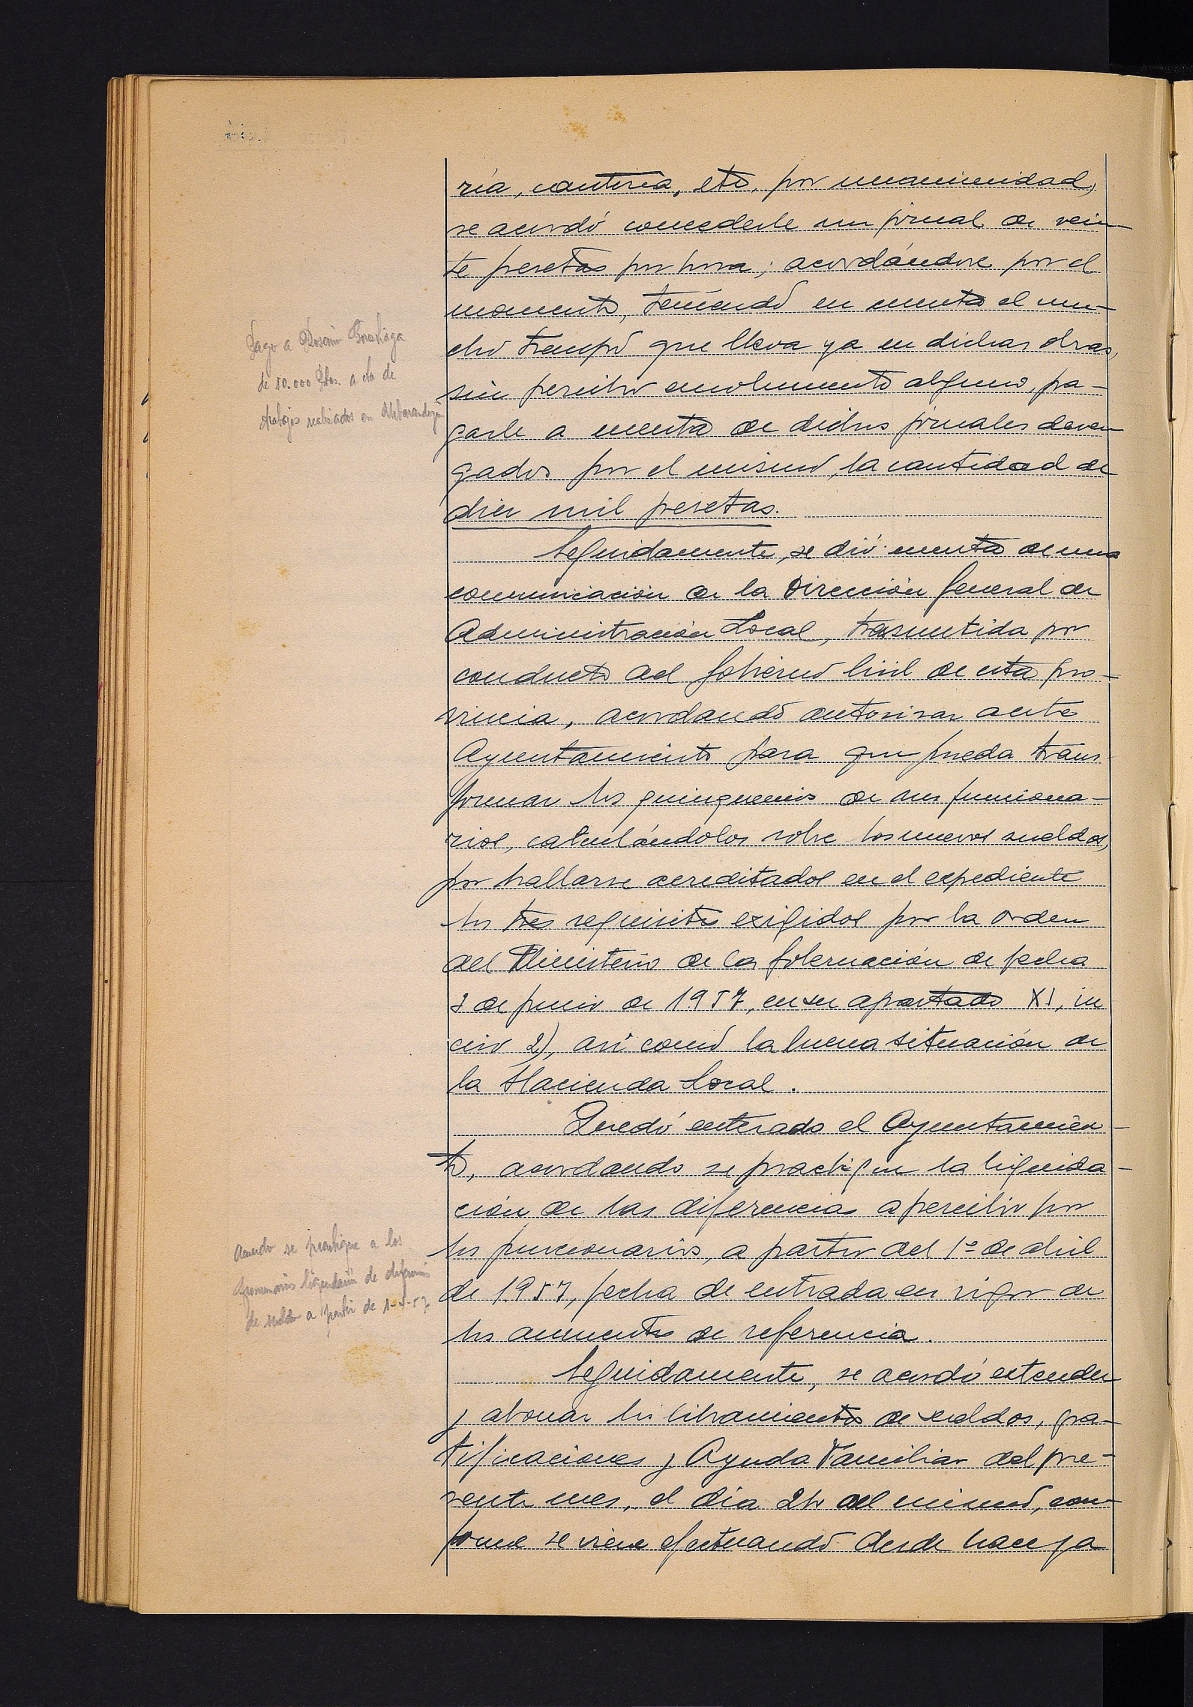 ría, cantería, etc, por unanimidad,
se acordó concederle un jornal de vein-
te pesetas por hora; acordándose por el
momento, teniendo en cuenta el mu-
cho tiempo que lleva ya en dichas obras,
sin percibir emolumento alguno, pa-
garle a cuenta de dichos jornales deven-
gados por el mismo, la cantidad de
diez mil pesetas.
Pago a
de 10.000 Ptas. a cta de
trabajos realizados en
Seguidamente, se dió cuenta de una
comunicación de la Dirección General de
Administración Local, trasmitida por
conducto del Gobierno Civil de esta pro-
vincia, acordando autorizar a este
Ayuntamiento para que pueda trans-
formar los quinquenios de sus funciona-
rios, calculándolos sobre los nuevos sueldos,
por hallarse acreditados en el expediente
los tres requisitos exigidos por la orden
del Ministerio de la Gobernación de fecha
de Junio de 1957, en su apartado XI, in
ciso 2), así como la buena situación de
la Hacienda Local.
Quedó enterado el Ayuntamien-
to, acordando se practique la liquida-
ción de las diferencias a percibir por
los funcionarios, a partir del 1º de abril
de 1957, fecha de entrada en vigor de
los aumentos de referencia.
Acuerdo se practique a los
funcionarios liquidación de
de sueldo a partir de 1-4-57
Seguidamente, se acordó extender
y abonar los libramientos de sueldos, gra-
tificaciones y Ayuda Familiar del pre-
sente mes, el día del mismo, con-
forme se viene efectuando desde hace ya